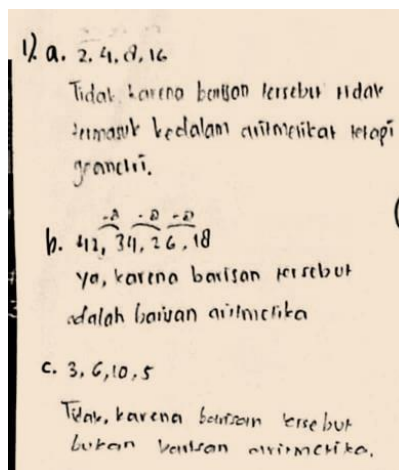 1). a. 2, 4, 8, 16
Tidak, karena barisan tersebut tidak
termasuk kedalam aritmetikat tetapi
geometri.
-8 -8 -8
b. 42, 34, 26, 18
ya, karena barisan tersebut
adalah barisan aritmetika
c. 3, 6, 10, 5
Tidak, karena barisan tersebut
bukan barisan aritmetika.